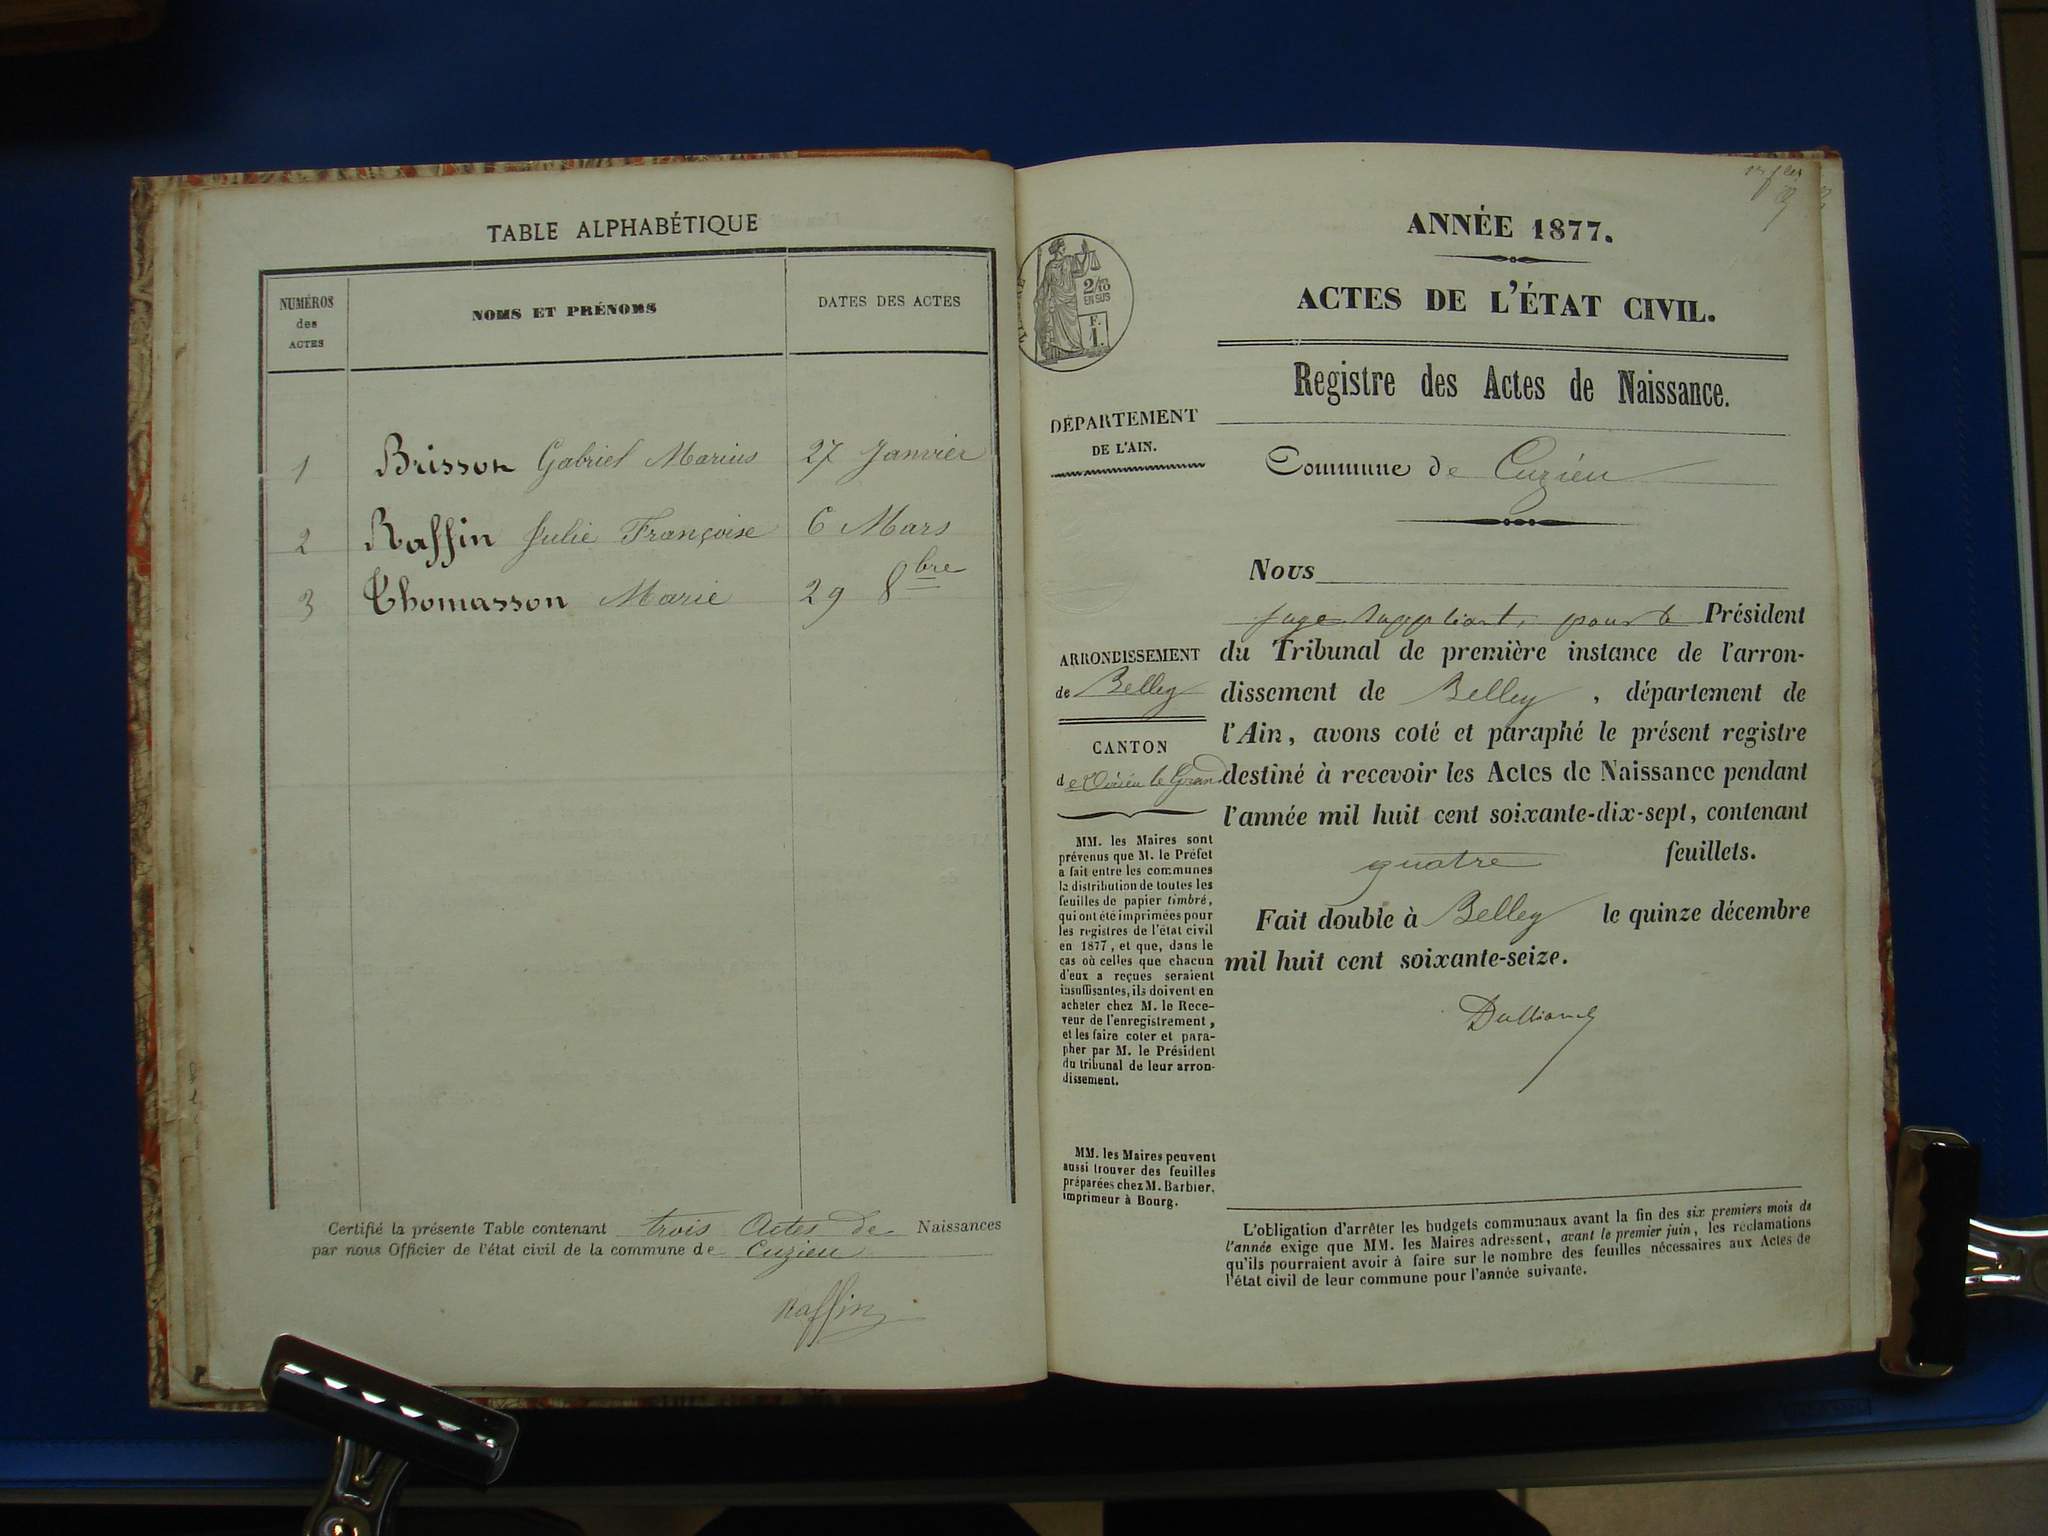 TABLE ALPHABÉTIQUE
NUMÉROS
des
ACTES
NOMS ET PRÉNOMS
DATES DES ACTES
1 Brisson Gabriel Marius 27 Janvier
2 Raffin Julie Françoise 6 Mars
3 Thomasson Marie 29 8bre
Certifié la présente Table contenant trois Actes de Naissances
par nous Officier de l'état civil de la commune de Cuzieu
Raffin
2/10
EN SUS
F.
1.
ANNÉE 1877.
ACTES DE L'ÉTAT CIVIL.
Registre des Actes de Naissance.
DÉPARTEMENT
DE L'AIN.
Commune de Cuzieu
ARRONDISSEMENT
de Belley
CANTON
de Virieu le Grand
MM. les Maires sont
prévenus que M. le Préfet
a fait entre les communes
la distribution de toutes les
feuilles de papier timbré,
qui ont été imprimées pour
les registres de l'état civil
en 1877, et que, dans le
cas où celles que chacun
d'eux a reçues seraient
insuffisantes, ils doivent en
acheter chez M. le Rece-
veur de l'enregistrement,
et les faire coter et para-
pher par M. le Président
du tribunal de leur arron-
dissement.
MM. les Maires peuvent
aussi trouver des feuilles
préparées chez M. Barbier,
imprimeur à Bourg.
Nous
juge suppléant, pour le Président
du Tribunal de première instance de l'arron-
dissement de Belley, département de
l'Ain, avons coté et paraphé le présent registre
destiné à recevoir les Actes de Naissance pendant
l'année mil huit cent soixante-dix-sept, contenant
quatre feuillets.
Fait double à Belley le quinze décembre
mil huit cent soixante-seize.
L'obligation d'arrêter les budgets communaux avant la fin des six premiers mois de
l'année exige que MM. les Maires adressent, avant le premier juin, les réclamations
qu'ils pourraient avoir à faire sur le nombre des feuilles nécessaires aux Actes de
l'état civil de leur commune pour l'année suivante.